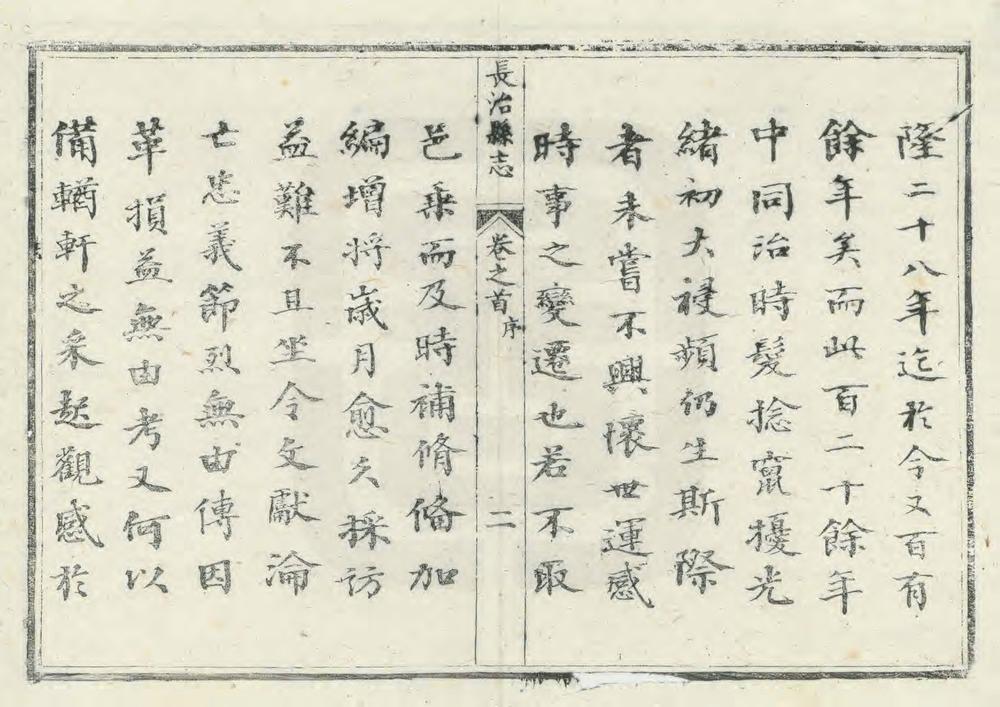 隆二十八年迄於今又百有
餘年矣而此百二十餘年
中同治時髮捻竄擾光
緒初大祲頻仍生斯際
者未嘗不興懷世運感
時事之變遷也若不取
長治縣志
卷之首
序
二
邑乘而及時補脩條加
編增將歲月愈久採訪
益難不且坐令文獻淪
亡忠義節烈無由傳因
革損益無由考又何以
備輶軒之采起觀感於